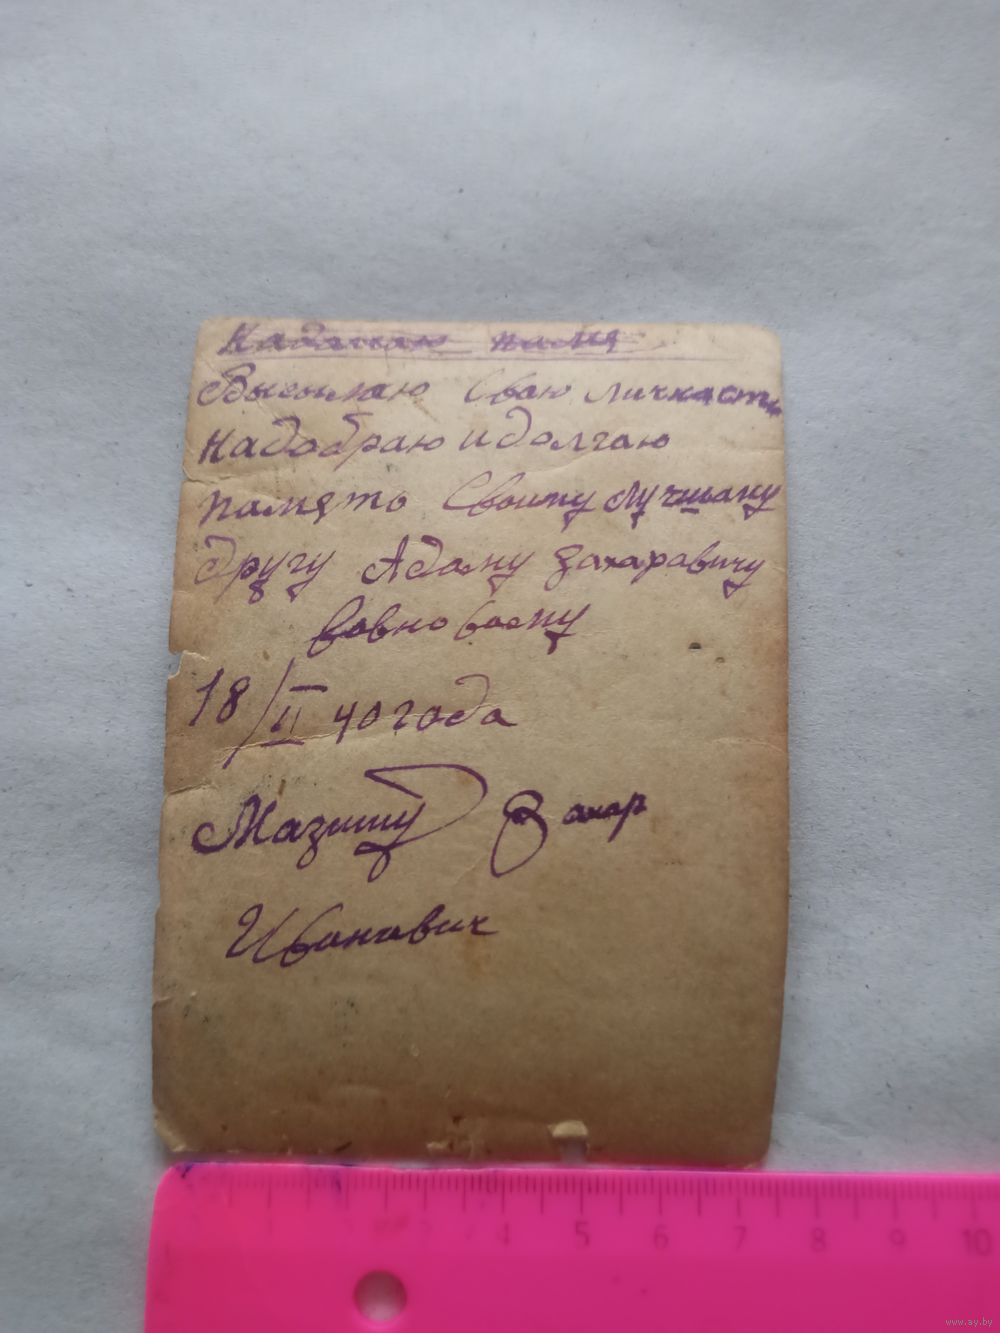 Высылаю Сваю личкасть
надобраю идолгаю
память Своиму лучшаму
другу Адаму Захаравичу
18/II 40 года
Захар
Иванавич
3 4 5 6 7 8 9 10
www.ay.by